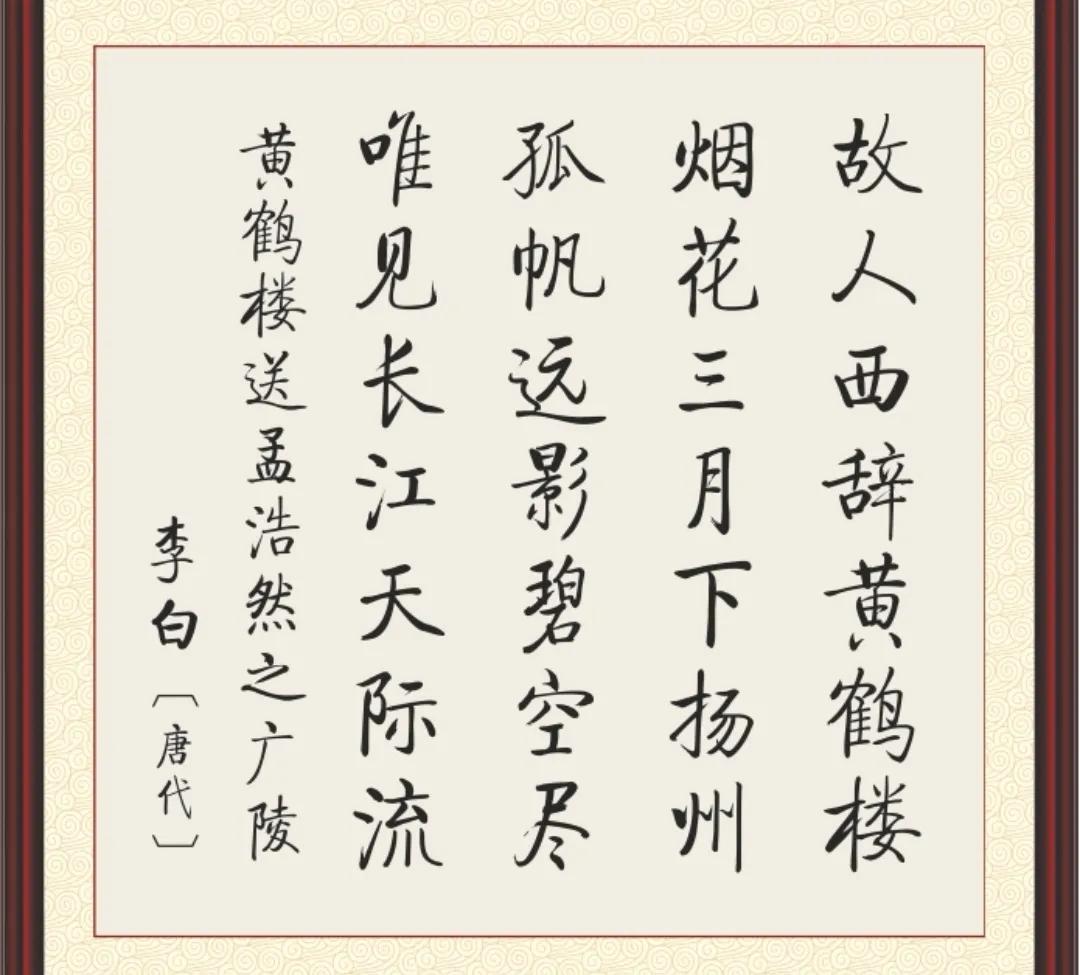 故人西辞黄鹤楼
烟花三月下扬州
孤帆远影碧空尽
唯见长江天际流
黄鹤楼送孟浩然之广陵
李白〔唐代〕